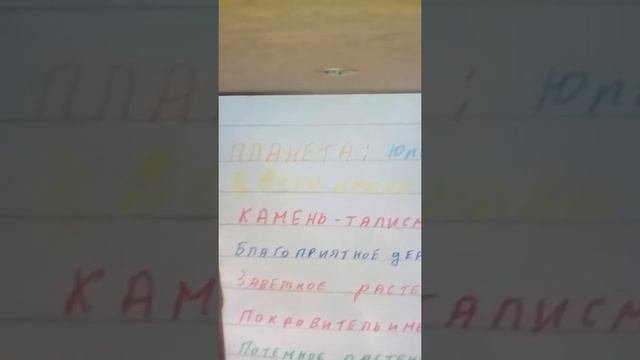 ПЛАНЕТА: Юпи
КАМЕНЬ-ТАЛИСМ
БЛАГОПРИЯТНОЕ ДЕР
ЗАВЕТНОЕ РАСТЕ
ПОКРОВИТЕЛЬ ИМЕ
ПОТЕМНОЕ РАСТЕН